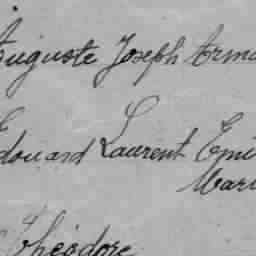 Auguste Joseph Arma
Edouard Laurent Emi
Mari
Théodore